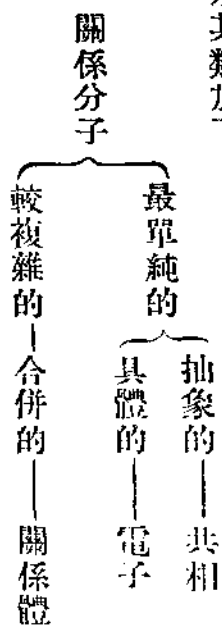 其類
關係分子
最單純的
抽象的——共相
具體的——電子
較複雜的—合併的——關係體